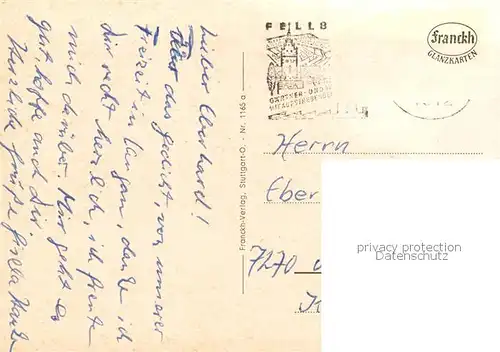 Lieber Eberhard!
Über das Gedicht, von unserer
Freizeit in danke ich
dir recht herzlich, ich freute
mich darüber. Mir geht es
gut, hoffe auch dir.
Herzliche Grüße Gisela
Franckh-Verlag, Stuttgart-O. - Nr. 1165 a
FELLB
GÄRTNER- UND
Franckh
GLANZKARTEN
Herrn
Eber
7270
privacy protection
Datenschutz